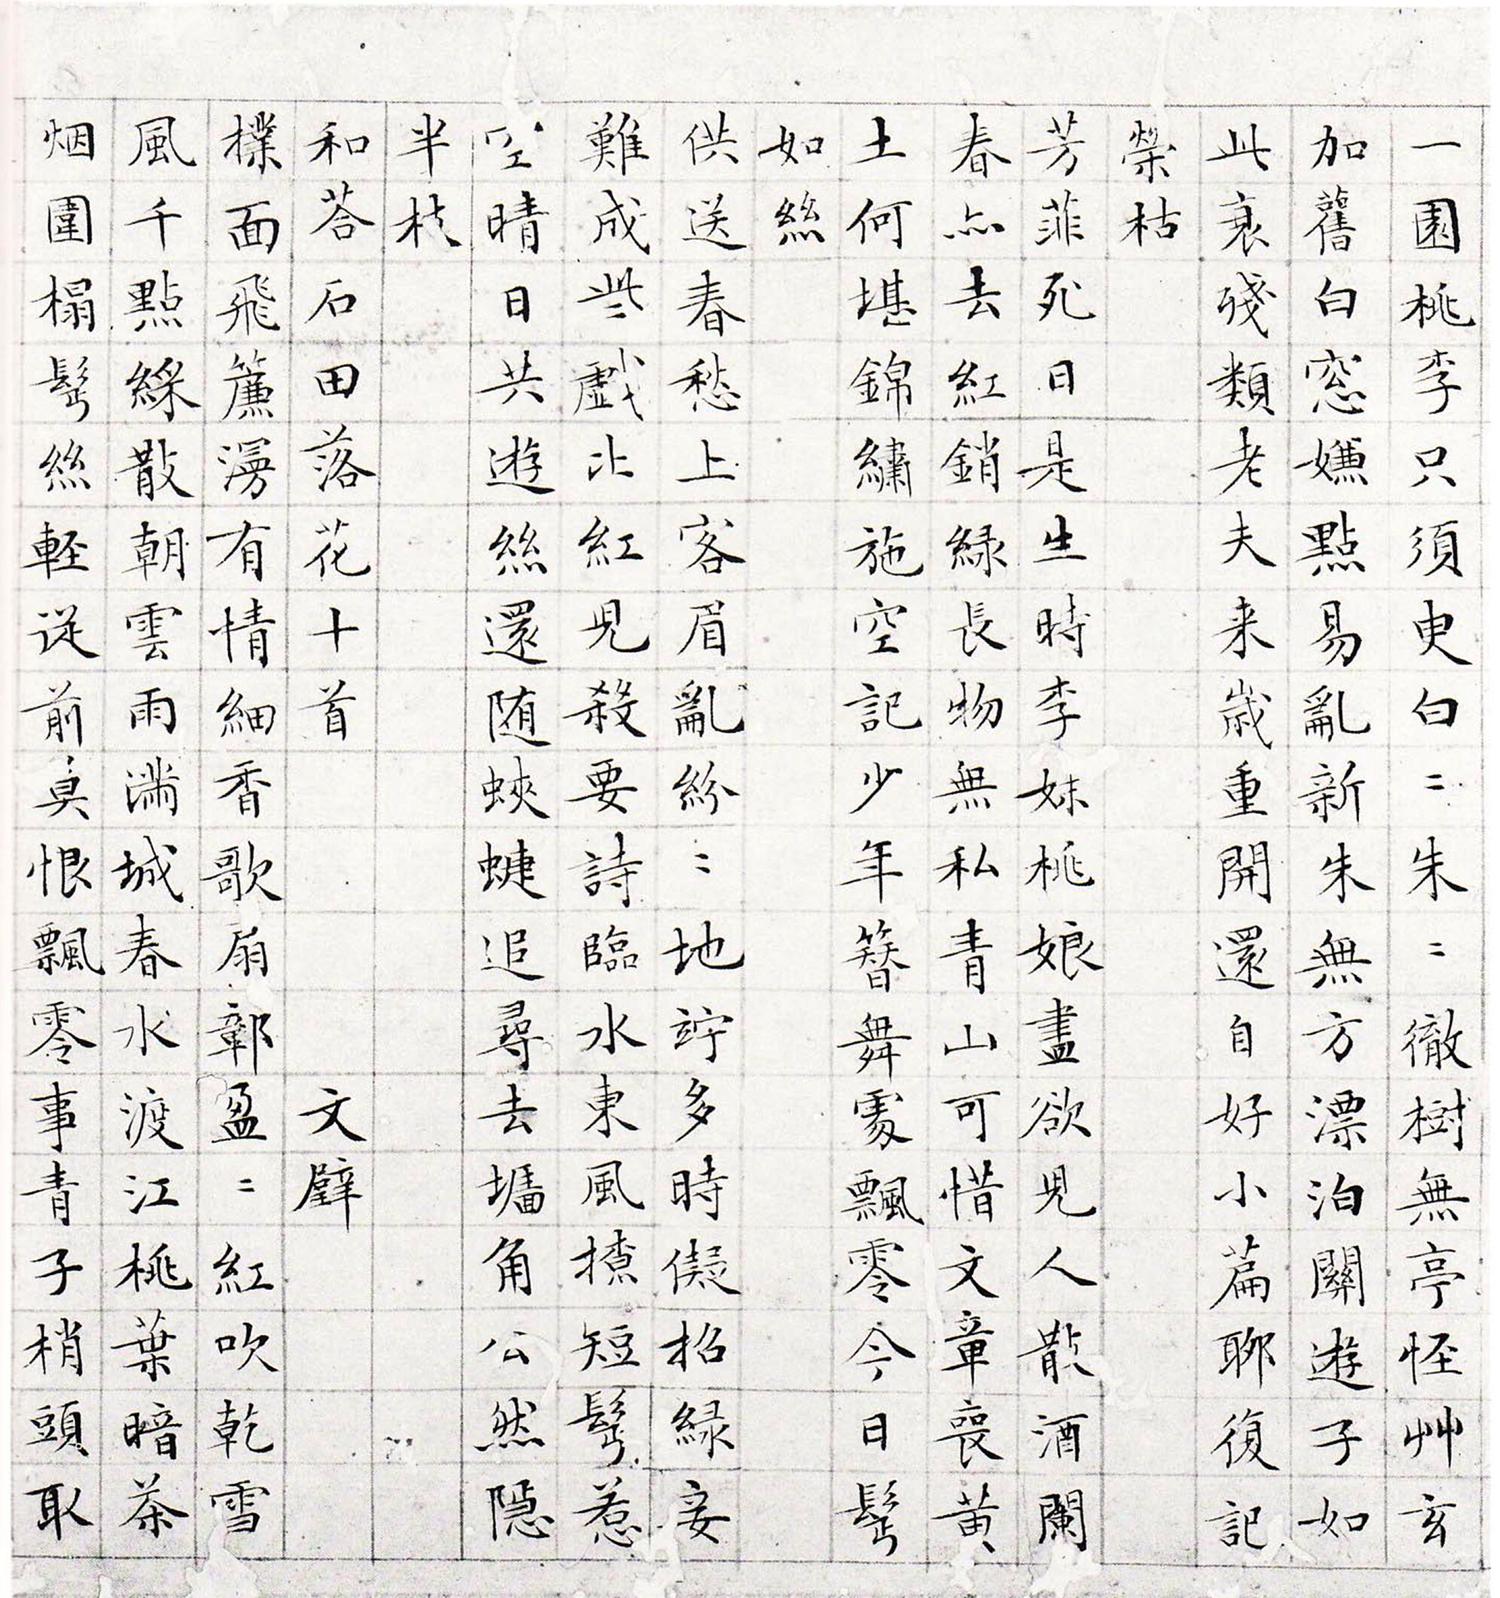 一園桃李只須臾白〻朱〻徹樹無亭怪艸玄
加舊白窓嫌點易亂新朱無方漂泊關遊子如
此衰殘類老夫来歳重開還自好小篇聊復記
榮枯
芳菲死日是生時李妹桃娘盡欲兒人散酒闌
春亦去紅銷緑長物無私青山可惜文章喪黄
土何堪錦繡施空記少年簪舞處飄零今日髩
如絲
供送春愁上客眉亂紛〻地竚多時儗招緑妾
難成些戲比紅兒殺要詩臨水東風撩短髩惹
空晴日共遊絲還随蛺蝶追尋去墻角公然隠
半枝
和荅石田落花十首文壁
撲面飛簾漫有情細香歌扇鄣盈〻紅吹乾雪
風千點綵散朝雲雨滿城春水渡江桃葉暗茶
烟圍榻髩絲軽従前莫恨飄零事青子梢頭取